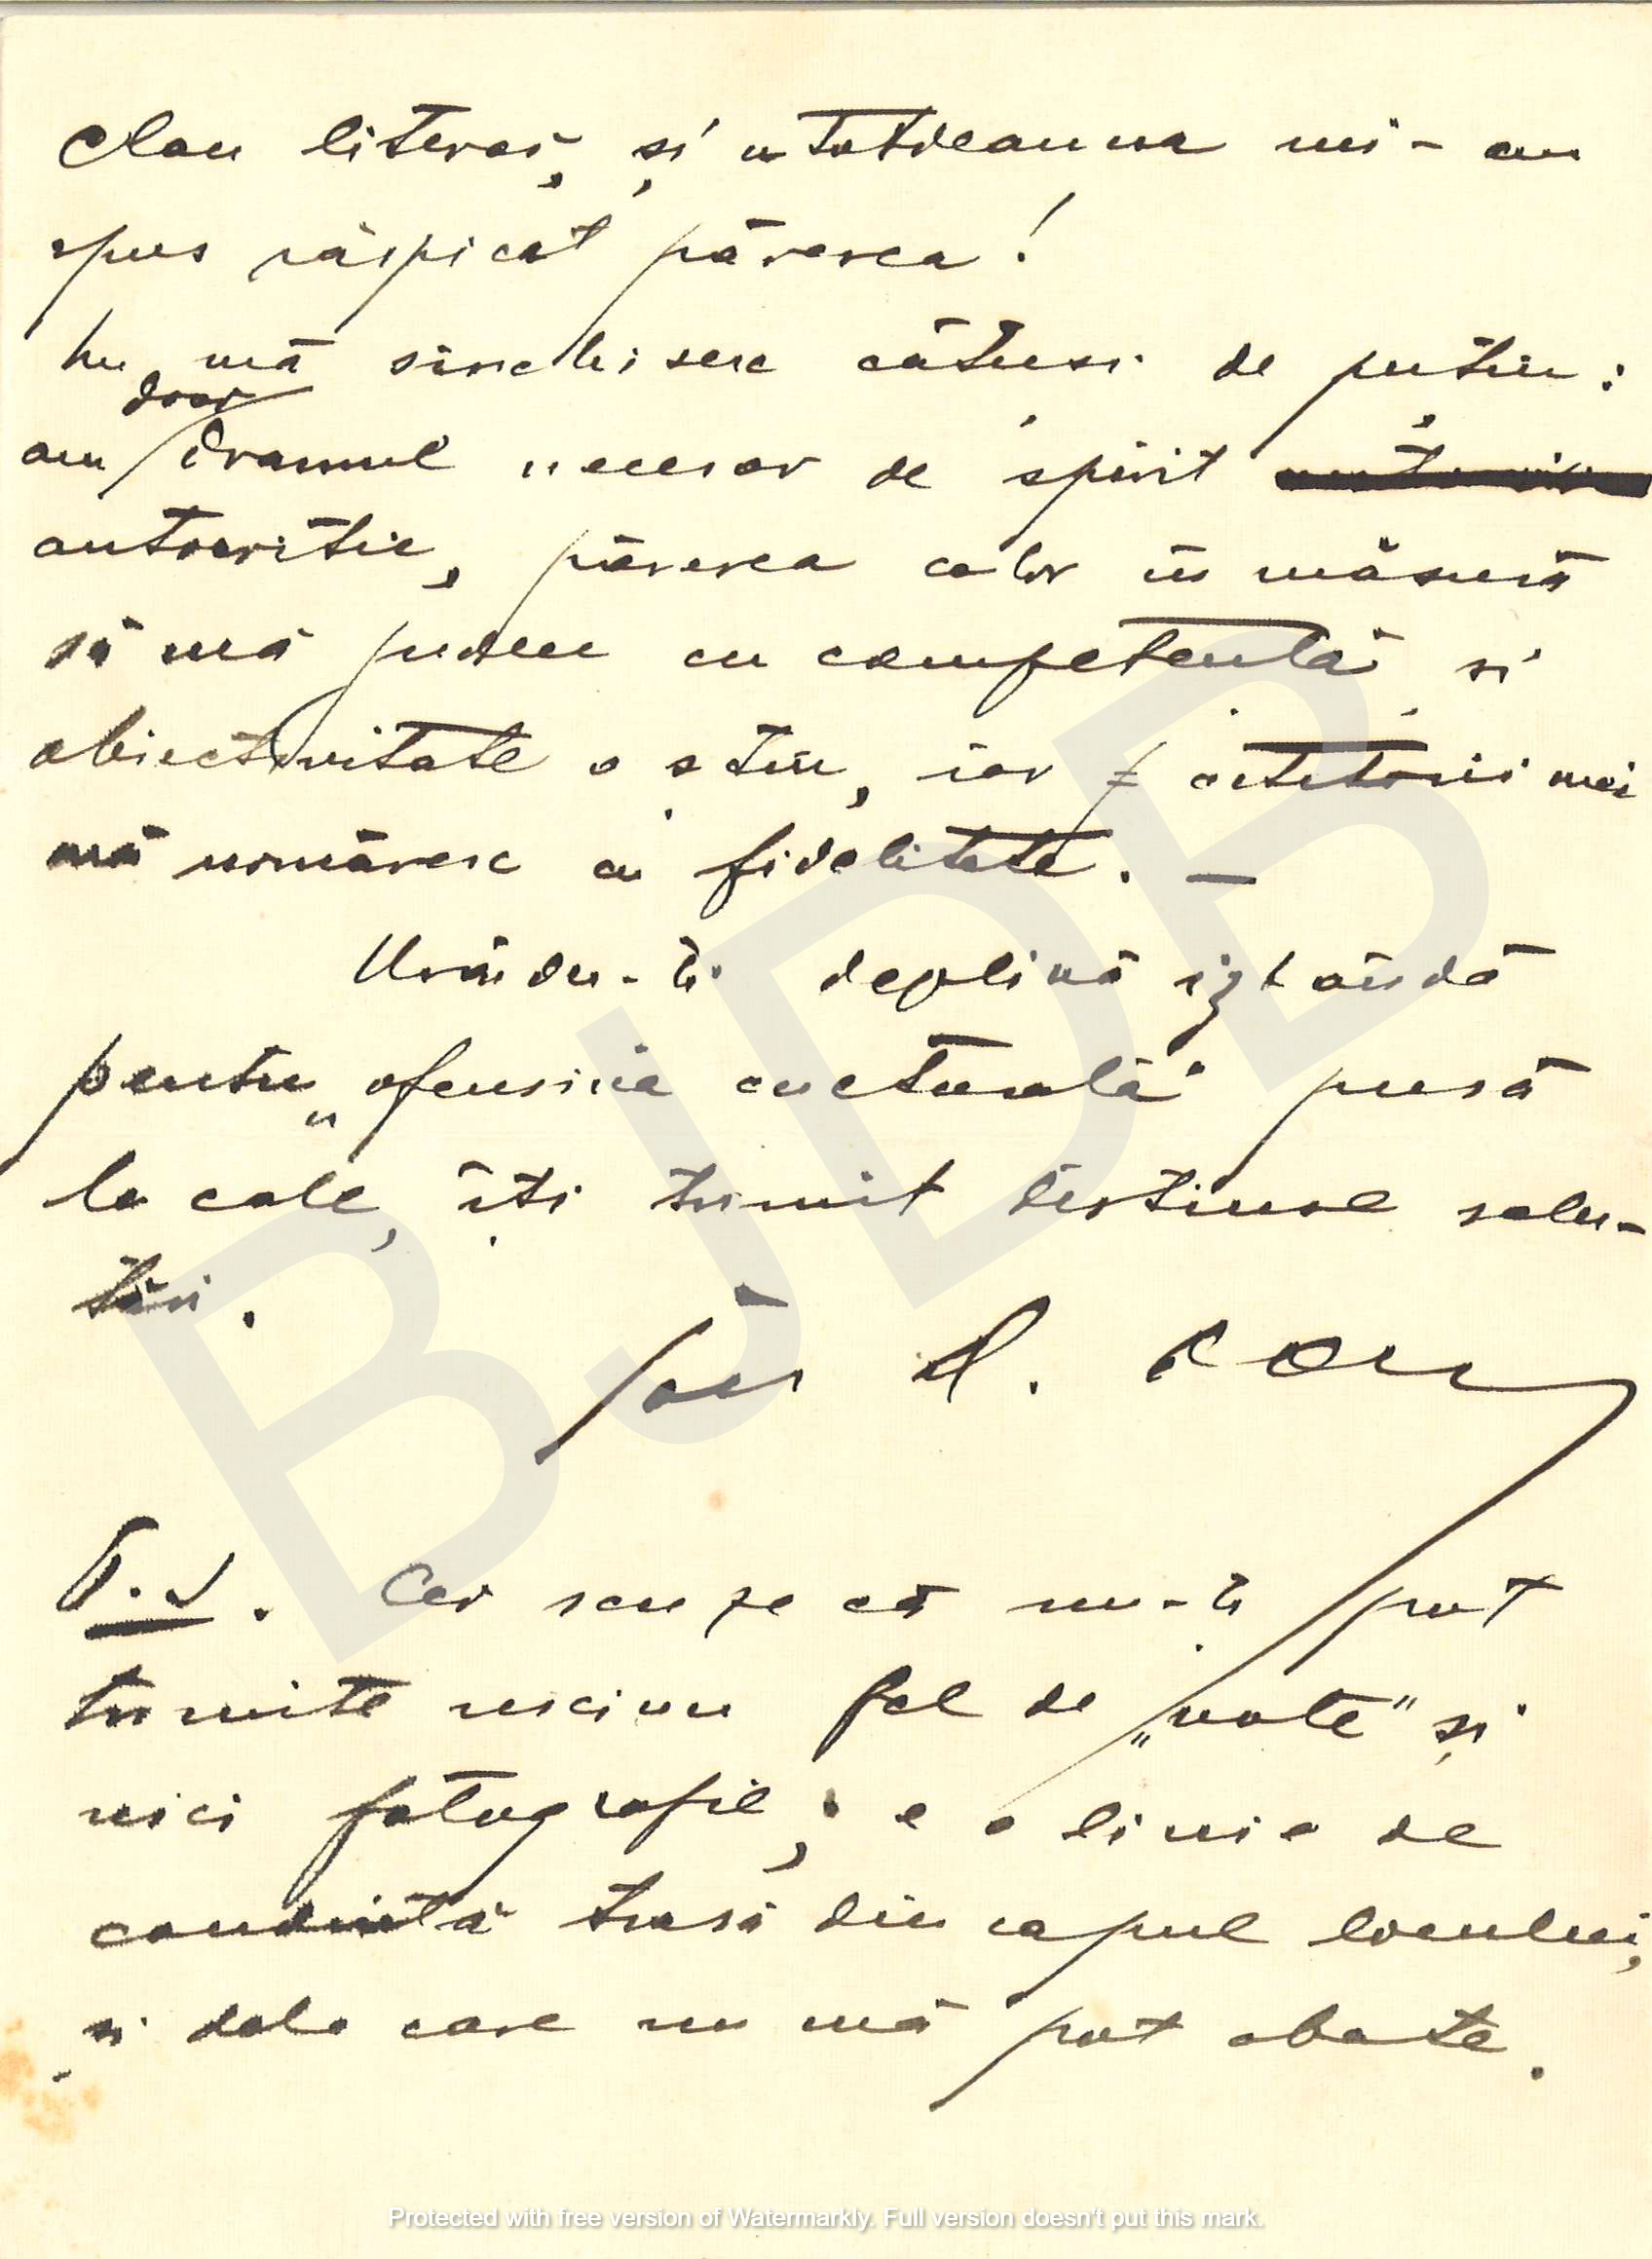 clan literar, și totdeauna mi-am
spus răspicat părerea!
Nu mă sinchisesc câtuși de puțin:
am doar dramul necesar de spirit
autocritic, părerea celor în măsură
să mă judece cu competență și
obiectivitate o știu, iar cititorii mei
mă urmăresc cu fidelitate. —
Urându-ți deplină izbândă
pentru „ofensiva culturală" pusă
la cale, îți trimit destinse salu-
tări.
P.S. Cer scuze că nu-ți pot
trimite niciun fel de „note" și
nici fotografie; e o linie de
conduită trasă din capul locului,
și dela care nu mă pot abate.
BJDB
Protected with free version of Watermarkly. Full version doesn't put this mark.